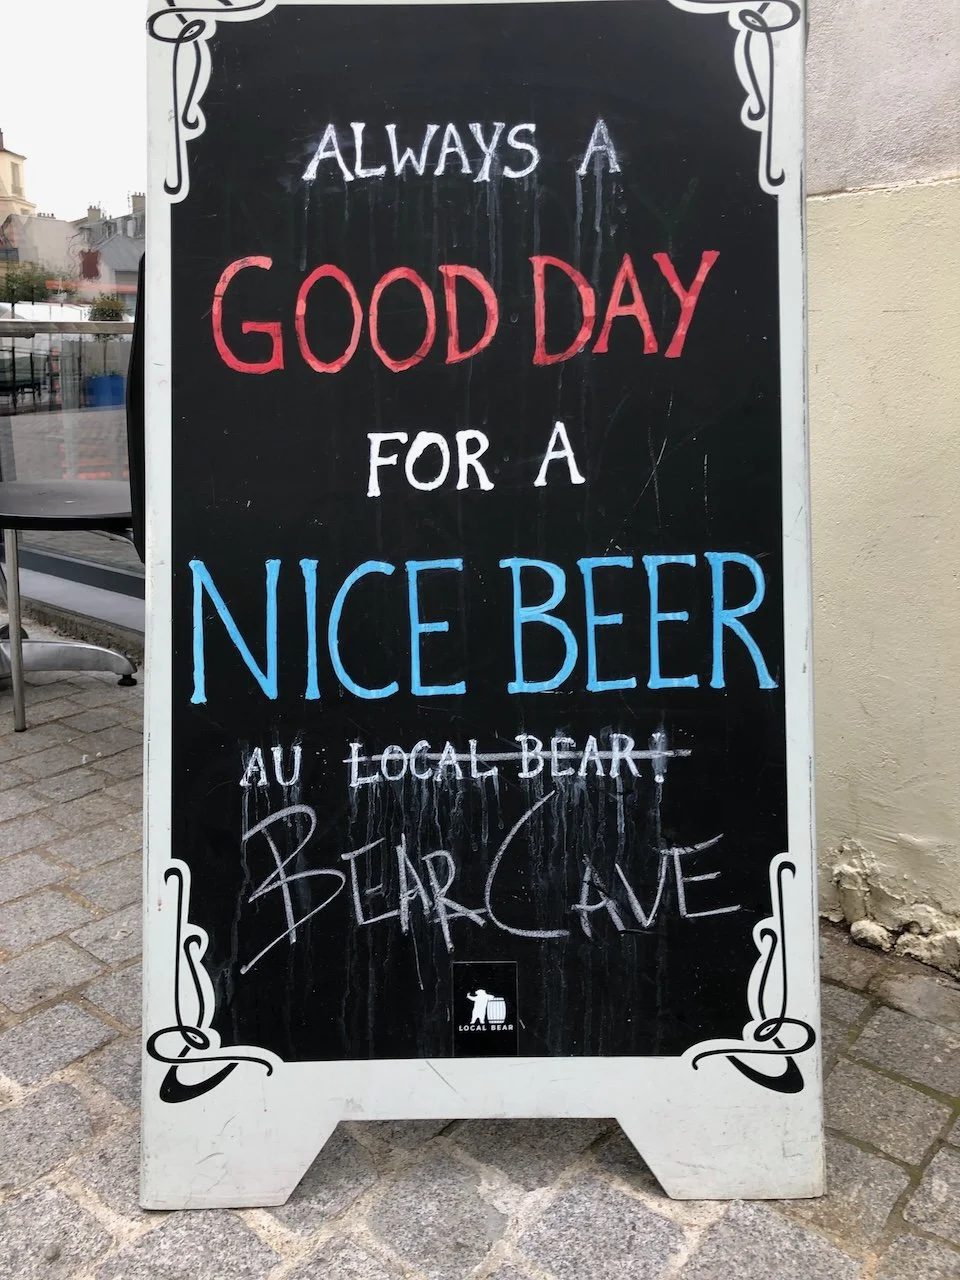 ALWAYS A
GOOD DAY
FOR A
NICE BEER
AU LOCAL BEAR!
BEAR CAVE
LOCAL BEAR